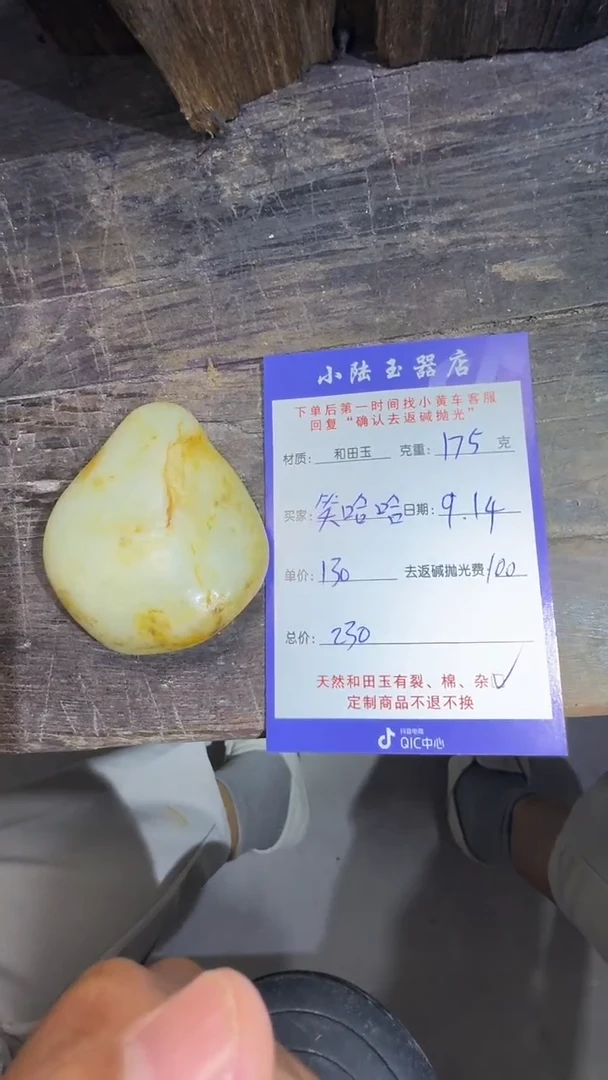 小陆玉器店
下单后第一时间找小黄车客服
回复“确认去返碱抛光”
材质: 和田玉 克重: 175 克
买家: 笑哈哈 日期: 9.14
单价: 130 去返碱抛光费 100
总价: 230
天然和田玉有裂、棉、杂
定制商品不退不换
抖音电商
QIC中心